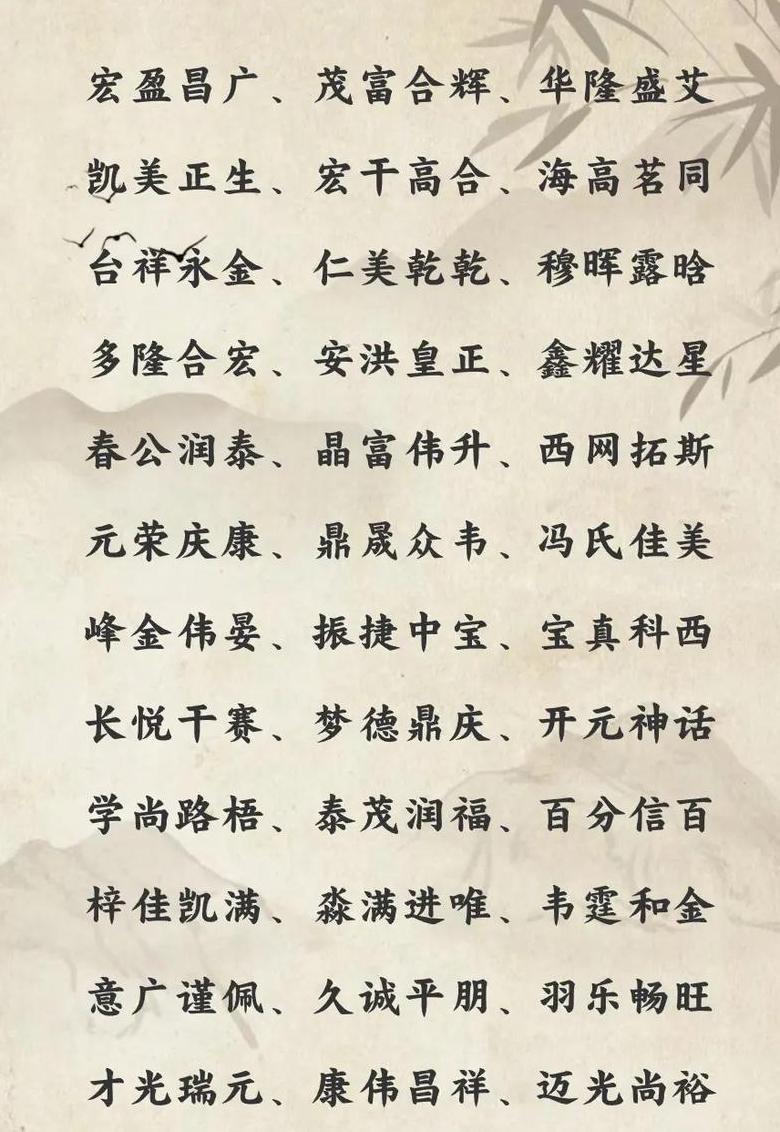 宏盈昌广、茂富合辉、华隆盛艾
凯美正生、宏干高合、海高茗同
台祥永金、仁美乾乾、穆晖露晗
多隆合宏、安洪皇正、鑫耀达星
春公润泰、晶富伟升、西网拓斯
元荣庆康、鼎晟众韦、冯氏佳美
峰金伟晏、振捷中宝、宝真科西
长悦干赛、梦德鼎庆、开元神话
学尚路梧、泰茂润福、百分信百
梓佳凯满、淼满进唯、韦霆和金
意广谨佩、久诚平朋、羽乐畅旺
才光瑞元、康伟昌祥、迈光尚裕